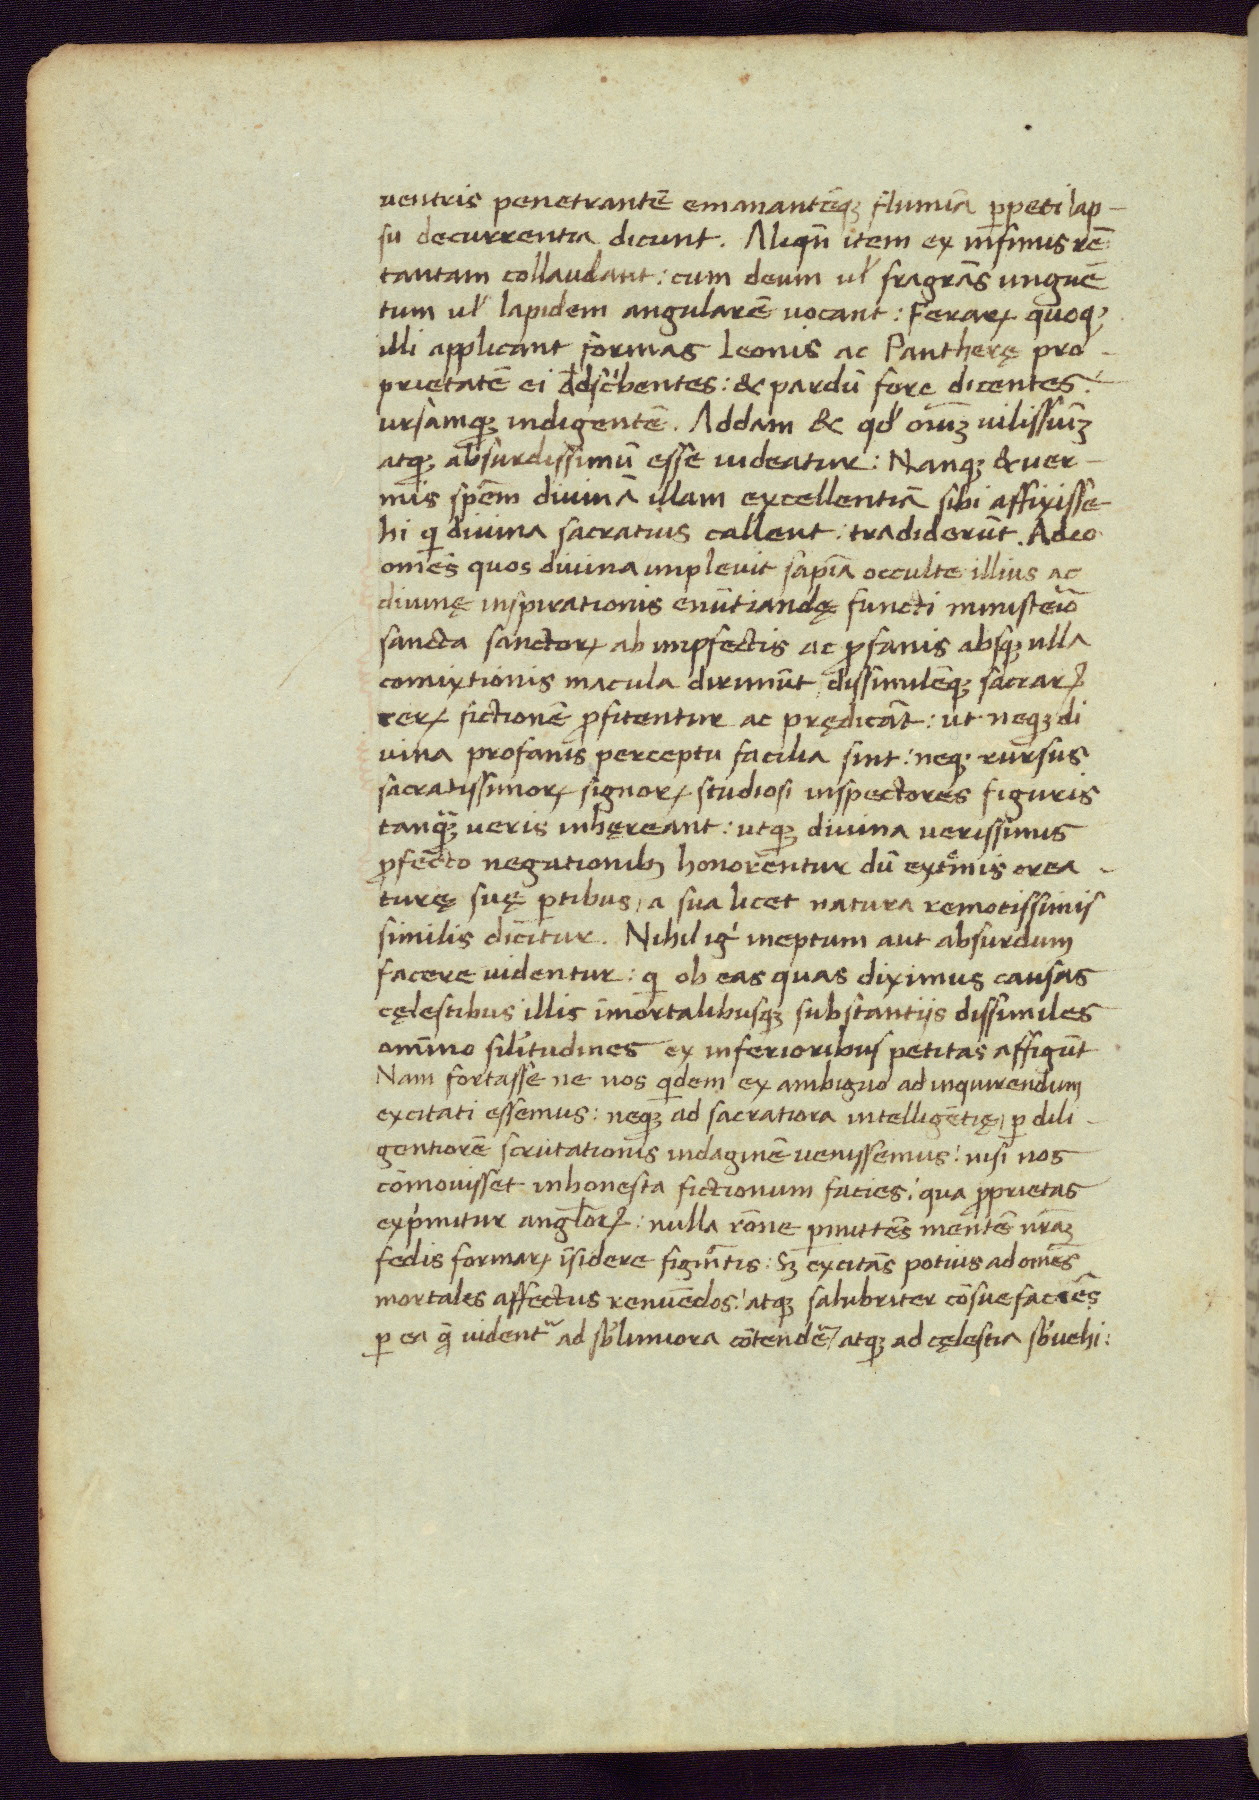 ventris penetrantē emanantēqꝫ flumīa ꝑpeti lap-
su decurrentia dicunt. Aliqn̄ item ex infimis rē
tantam collaudant: cum deum ul' fragrās unguē
tum ul' lapidem angularē uocant: Ferarꝝ quoqꝫ
illi applicant formas Leonis ac Pantherę pro-
prietatē ei adscͥbentes: & pardū fore dicentes:
ursamqꝫ indigentē. Addam & qđ oīuꝫ uilissimꝫ
atqꝫ absurdissimū esse uideatur: Nanqꝫ & ver-
mis spēm diuinā illam excellentiā sibi affixisse
hi qͥ diuina sacratius callent: tradiderūt. Adeo
omēs quos diuina impleuit sapīa occulte illius ac
diuinę inspirationis enūtiandę functi ministeiō
sancta sanctorꝝ ab impfectis ac ꝓfanis absqꝫ ulla
comixtionis macula dirimūt dissimilēqꝫ sacrarꝝ
rerꝝ fictionē ꝓfitentur ac prędicāt: ut neqꝫ di
uina profanis perceptu facilia sint: neqꝫ rursus
sacratissimorꝝ signorꝝ studiosi inspectores figuris
tanqꝫ̃ ueris inhęreant: utqꝫ diuina uerissimis
ꝓfecto negationibꝫ honorentur dū extͤmis crea-
turę suę ꝑtibus, a sua licet natura remotissimis
similis dicitur. Nihil ig' ineptum aut absurdum
facere uidentur: qͥ ob eas quas diximus causas
cęlestibus illis īmortalibusqꝫ substantijs dissimiles
omīno silitudines ex inferioribus petitas affigūt
Nam fortasse ne nos qͥdem ex ambiguo ad inquirendum
excitati essemus: neqꝫ ad sacratiora intelligētię, ꝑ dili-
gentiorē scrutationis indaginē uenissemus: nisi nos
cōmouisset inhonesta fictionum facies: qua ꝓprietas
expͥmitur angl̄orꝝ: nulla rōne ꝑmittēs mentē nr̄aꝫ
fedis formarꝝ īsidere figm̄tis: Sꝫ excitās potius ad omēs
mortales affectus renuēdos: atqꝫ salubriter cōsuefaciēs
ꝑ ea q̄ uident᷑ ad sb'limiora cōtendē, atqꝫ ad cęlestia sb'uehi: